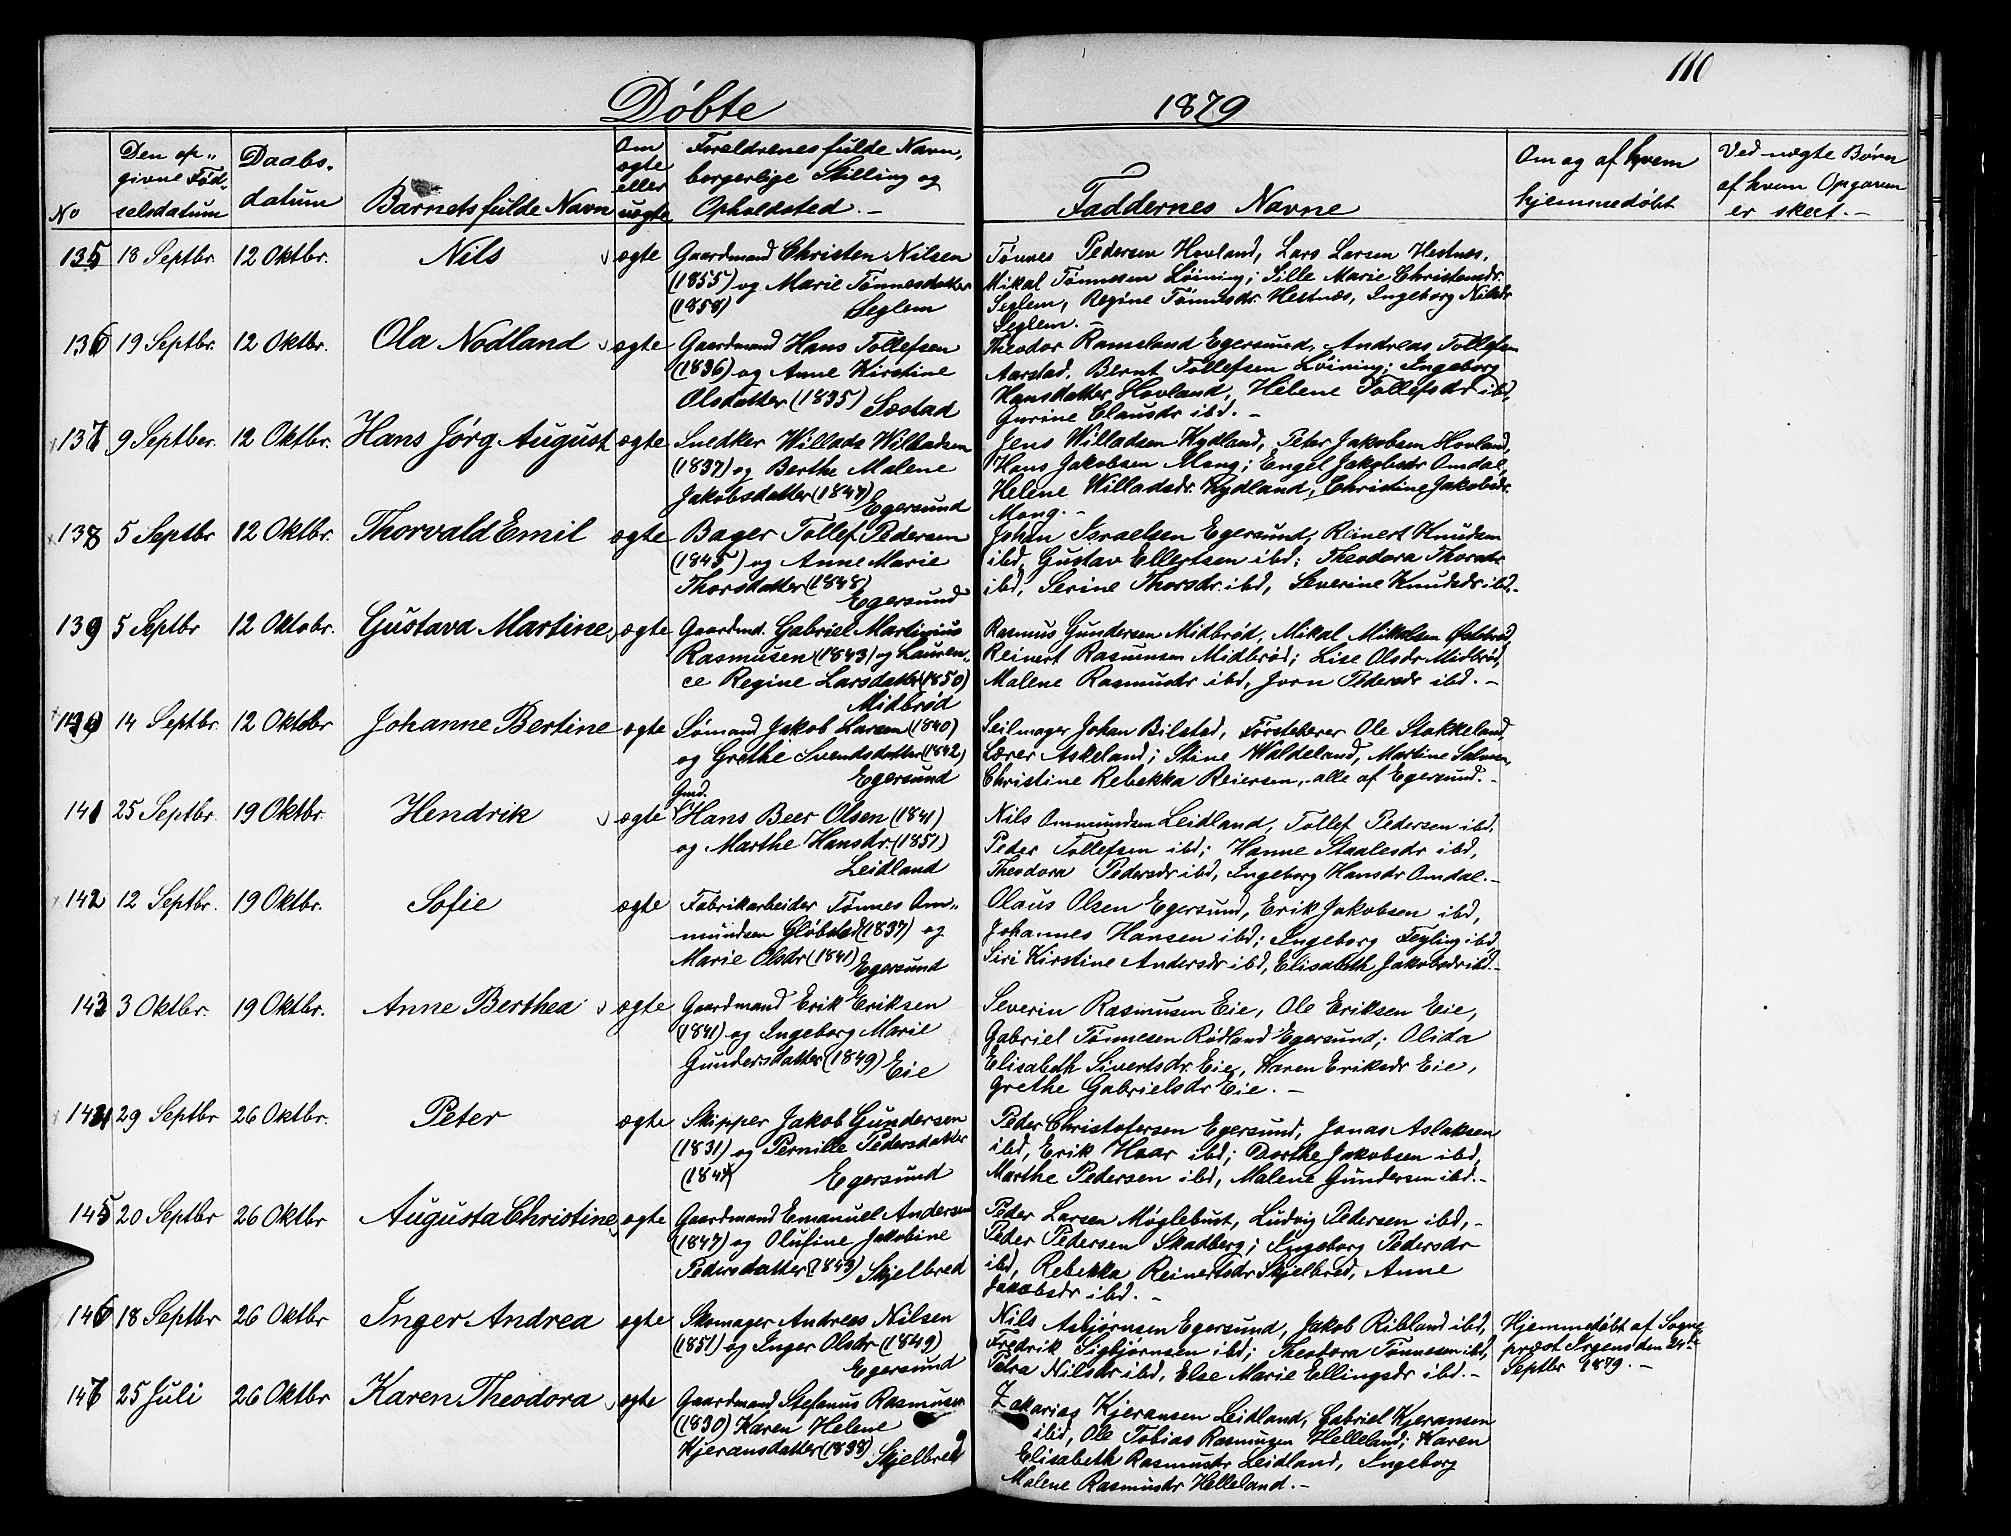 110
Døbte 1879
No
Den op-
givne Fød-
selsdatum
Daabs-
datum
Barnets fulde Navn
Om
ægte
eller
uægte
Foreldrenes fulde Navn,
borgerlige Stilling og
Opholdsted. -
Faddernes Navne
Om og af hvem
hjemmedøbt
Ved uægte Børn
af hvem Opgaven
er skeet. -
135 18 Septbr. 12 Oktbr. Nils ægte
Gaardmand Christen Nilsen
(1855) og Marie Tønnesdatter
(1858) Seglem
Tønnes Pedersen Hovland, Lars Larsen Hestnes,
Mikal Tønnesen Løining; Sille Marie Christensdr.
Seglem, Regine Tønnesdr Hestnæs, Ingeborg Nilsdr
Seglem. -
136 19 Septbr. 12 Oktbr. Ola Nodland ægte
Gaardmand Hans Tollefsen
(1836) og Anne Kirstine
Olsdatter (1835) Sæstad
Theodor Ramsland Egersund, Andreas Tollefsen
Aarstad, Bernt Tollefsen Løining; Ingeborg
Hansdatter Hovland, Helene Tollefsdr ibd,
Gurine Clausdr ibd. -
137 9 Septber. 12 Oktbr. Hans Jørg August ægte
Snedker Willads Willadsen
(1837) og Berthe Malene
Jakobsdatter (1847)
Egersund
Jens Willadsen Kydland, Peter Jakobsen Hovland,
Hans Jakobsen Mong; Engel Jakobsdr Omdal,
Helene Willadsdr. Kydland, Christine Jakobsdr.
Mong. -
138 5 Septbr 12 Oktbr. Thorvald Emil ægte
Bager Tollef Pedersen
(1845) og Anne Marie
Thorsdatter (1848)
Egersund
Johan Israelsen Egersund, Reinert Knudsen
ibd, Gustav Ellertsen ibd; Theodora Thorsdr
ibd, Serine Thorsdr ibd, Severine Knudsdr ibd. -
139 5 Septbr 12 Oktobr. Gustava Martine ægte
Gaardmd. Gabriel Martinius
Rasmusen (1843) og Lauren-
ce Regine Larsdatter (1850)
Midbrød
Rasmus Gundersen Midbrød, Mikal Mikalsen
Reinert Rasmusen Midbrød; Lise Olsdr Midbrød,
Malene Rasmusdr ibd, Jorn Pedersdr ibd. -
14 Septbr. 12 Oktobr Johanne Bertine ægte
Sømand Jakob Larsen (1840)
og Grethe Svendsdatter (1842)
Egersund
Seilmager Johan Bilstad, Førstelærer Ole Stokkeland,
Lærer Askeland; Stine Waldeland, Martine Salvesen,
Christine Rebekka Reiersen, alle af Egersund. -
141 25 Septbr. 19 Oktbr. Hendrik ægte
Gmd.
Hans Beer Olsen (1841)
og Marthe Hansdr. (1851)
Leidland
Nils Ommundsen Leidland, Tollef Pedersen ibd,
Peder Tollefsen ibd; Hanne Staalesdr ibd,
Theodora Pedersdr ibd, Ingeborg Hansdr Omdal. -
142 12 Septbr. 19 Oktbr. Sofie ægte
Fabrikarbeider Tønnes Om-
mundsen Gløbstad (1837) og
Marie Olsdr (1841)
Egersund
Olaus Olsen Egersund, Erik Jakobsen ibd,
Johannes Hansen ibd; Ingeborg Feyling ibd,
Siri Kirstine Andersdr ibd, Elisabeth Jakobsdr ibd. -
143 3 Oktbr. 19 Oktbr. Anne Berthea ægte
Gaardmand Erik Eriksen
(1841) og Ingeborg Marie
Gundersdatter (1849) Eie
Severin Rasmusen Eie, Ole Eriksen Eie,
Gabriel Tønnesen Rødland Egersund; Olida
Elisabeth Sivertsdr. Eie, Karen Eriksdr Eie,
Grethe Gabrielsdr Eie. -
144 29 Septbr 26 Oktbr. Peter ægte
Skipper Jakob Gundersen
(1831) og Pernille Pedersdatter
Egersund
Peder Christofersen Egersund, Jonas Aslaksen
ibd, Erik Haar ibd; Dorthe Jakobsen ibd,
Marthe Pedersen ibd, Malene Gundersen ibd. -
145 20 Septbr 26 Oktbr Augusta Christine ægte
Gaardmand Emanuel Andersen
(1847) og Olufine Jakobine
Pedersdatter (1849) Skjelbred
Peder Larsen Møglebust, Ludvig Pedersen ibd, -
Peder Pedersen Skadberg; Ingeborg Pedersdr
ibd, Rebekka Reinertsdr Skjelbred, Anne
Jakobsdr ibd. -
146 18 Septbr 26 Oktbr Inger Andrea ægte
Skomager Andreas Nilsen
(1851) og Inger Olsdr (1849)
Egersund
Nils Asbjørnsen Egersund, Jakob Ribland ibd,
Fredrik Sigbjørnsen ibd; Theodora Tønnesen ibd,
Petra Nilsdr ibd, Else Marie Ellingsdr ibd. -
Hjemmedøbt af Sogne-
præst Irgens den 24de
Septbr 1879. -
147 25 Juli 26 Oktbr Karen Theodora ægte
Gaardmand Stefanus Rasmusen
(1830) Karen Helene
Kjeransdatter (1838) Skjelbred
Zakarias Kjeransen Leidland, Gabriel Kjeransen
ibd, Ole Tobias Rasmusen Helleland; Karen
Elisabeth Rasmusdr Leidland, Ingeborg
Malene Rasmusdr Helleland. -